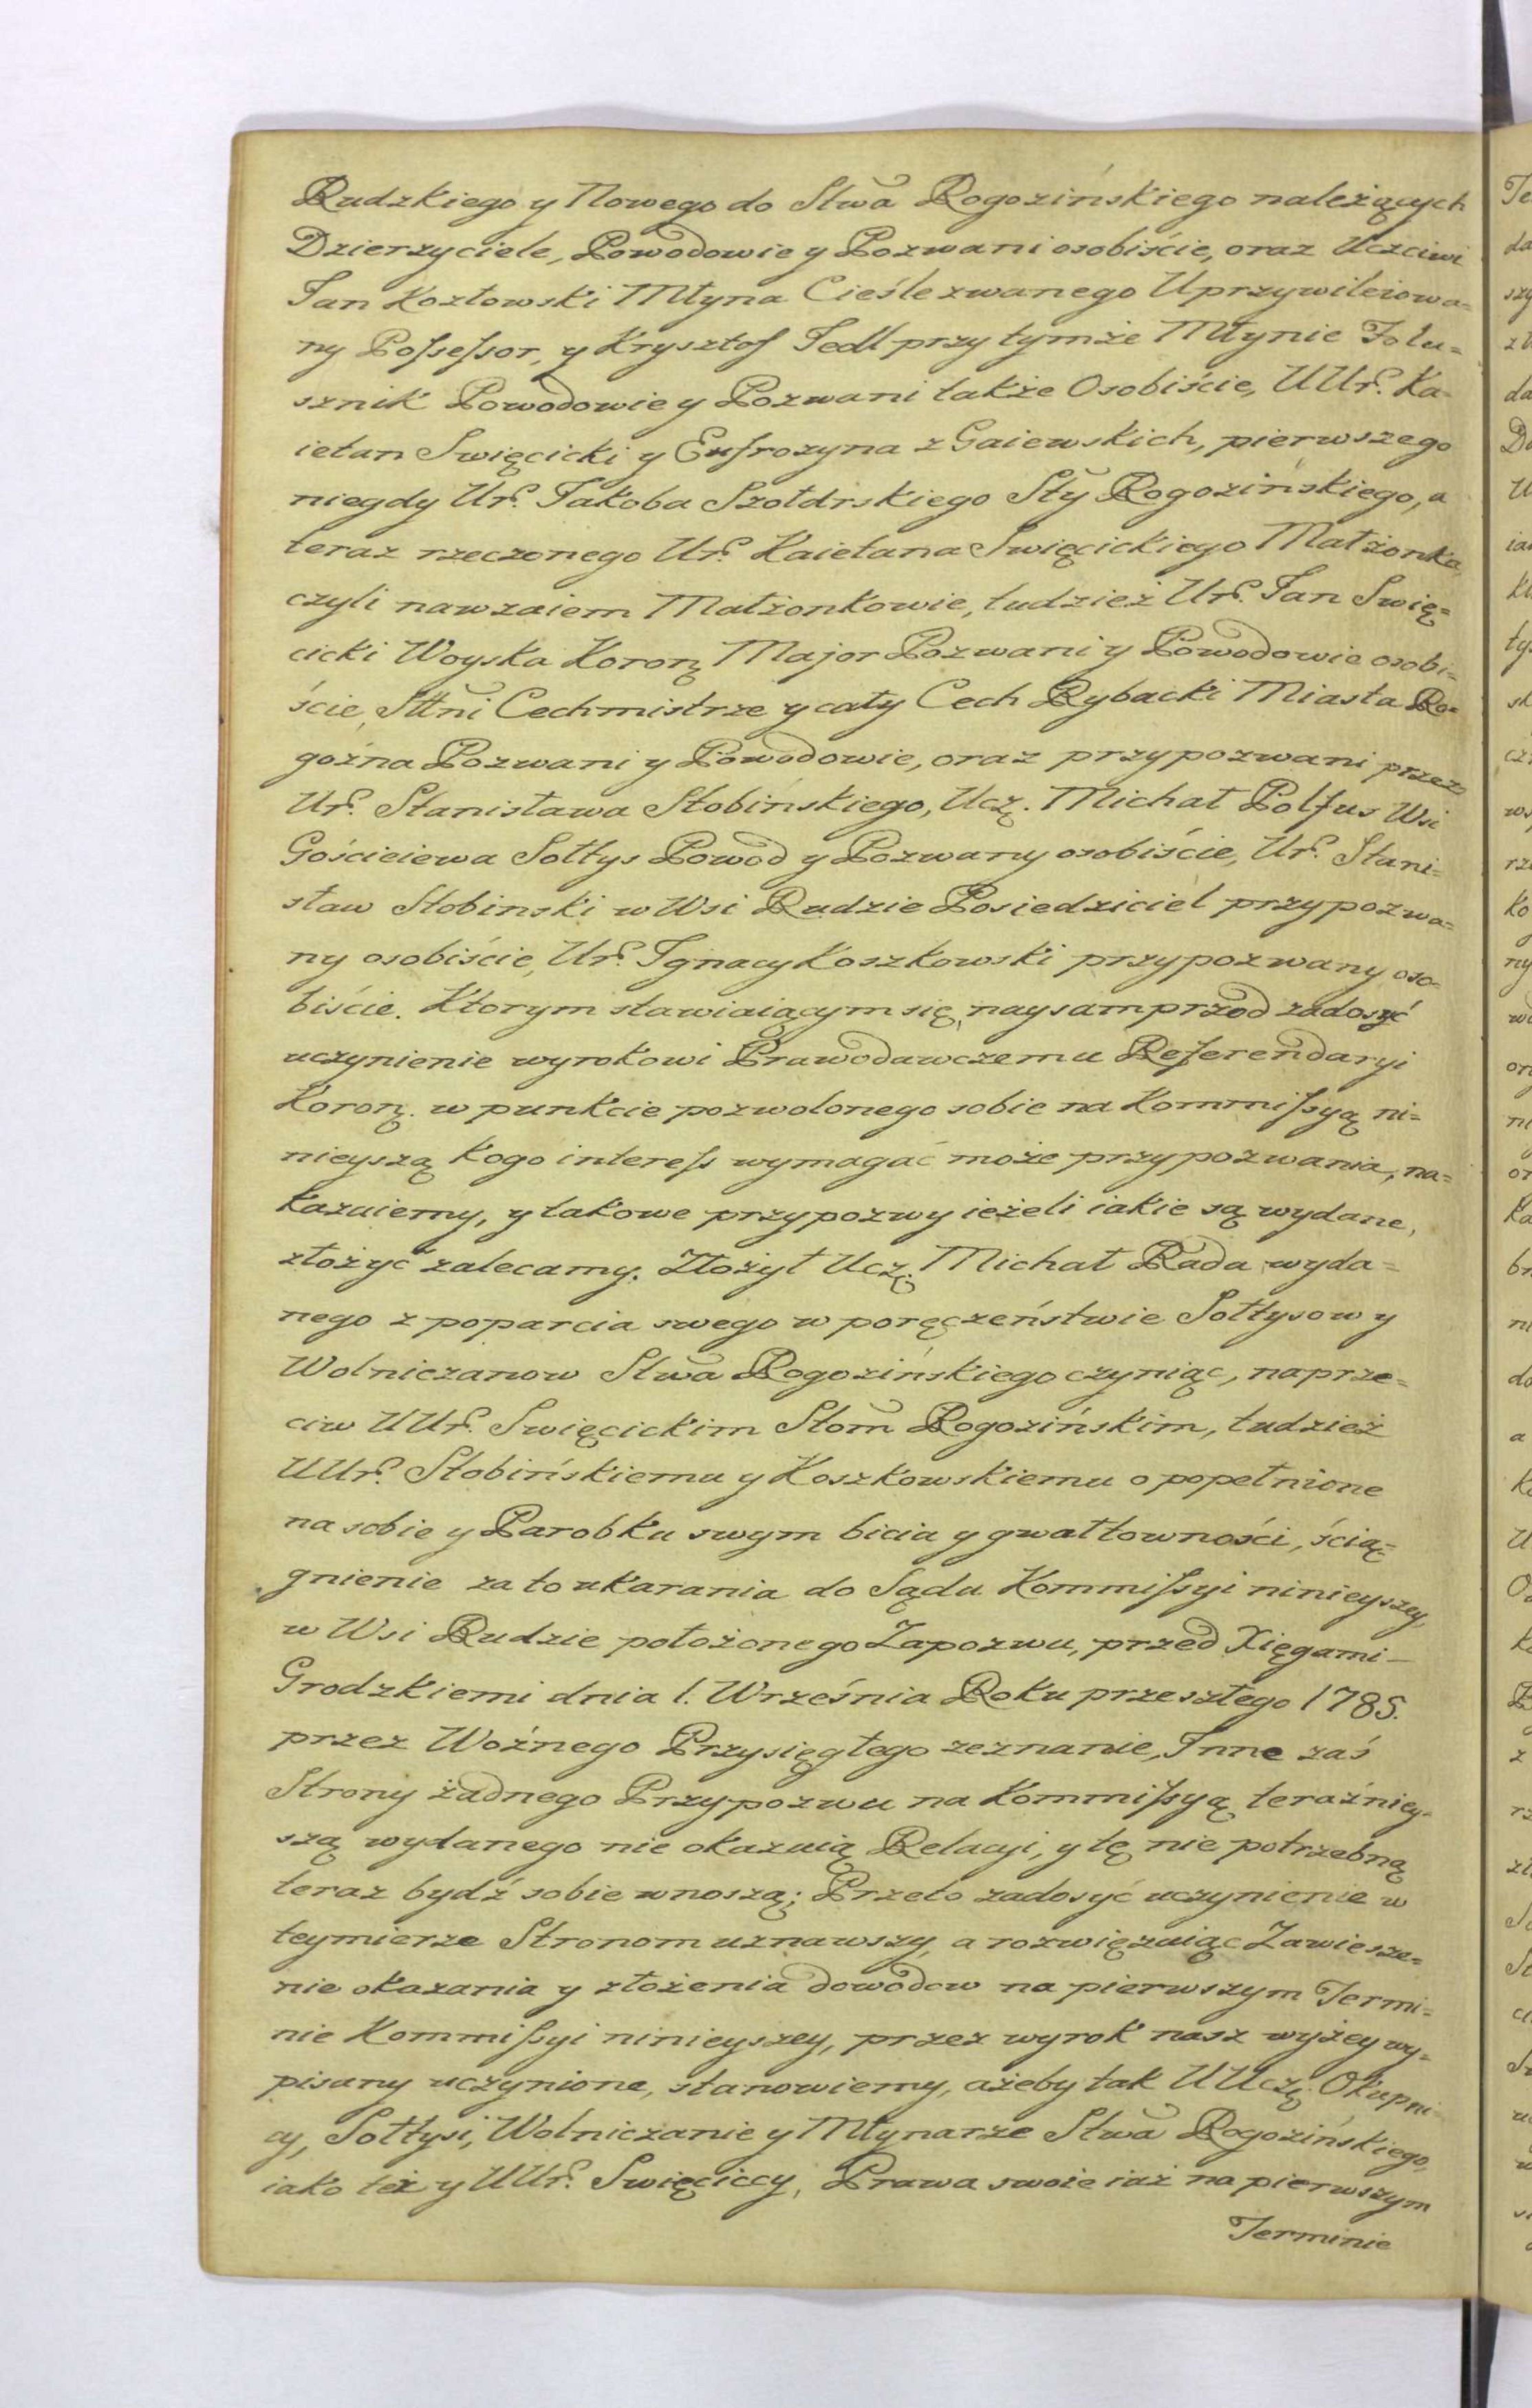 Rudzkiego y Nowego do Stwa Rogozińskiego należących
Dzierzyciele, Powodowie y Pozwani osobiście, oraz Uczciwi
Jan Kozłowski Młyna Cieśle zwanego Uprzywileiowa=
ny Possessor, y Krysztof Jedl przy tymże Młynie Folu=
sznik Powodowie y Pozwani także Osobiście, UUr. Ka=
ietan Swięcicki y Eufrozyna z Gaiewskich, pierwszego
niegdy Ur. Jakoba Szołdrskiego Sty Rogozińskiego, a
teraz rzeczonego Ur. Kaietana Swięcickiego Małżonka,
czyli nawzaiem Małżonkowie, tudzież Ur. Jan Swię=
cicki Woyska Koroń Major Pozwani y Powodowie osobi=
ście, Sttni Cechmistrze y cały Cech Rybacki Miasta Ro=
goźna Pozwani y Powodowie, oraz przypozwani przez
Ur. Stanisława Słobińskiego, Ucz. Michał Polfus Wsi
Gościeiewa Sołtys Powod y Pozwany osobiście, Ur. Stani=
sław Słobinski w Wsi Rudzie Posiedziciel przypozwa=
ny osobiście, Ur. Ignacy Koszkowski przypozwany oso=
biście. Ktorym stawiaiącym się, naysamprzod zadosyć
uczynienie wyrokowi Prawodawczemu Referendaryi
Koroń. w punkcie pozwolonego sobie na Kommissyą ni=
nieyszą kogo interess wymagać może przypozwania, na=
kazuiemy, y takowe przypozwy ieżeli iakie są wydane,
złożyć zalecamy. Złożył Ucz. Michał Rada wyda=
nego z poparcia swego w poręczeństwie Sołtysow y
Wolniczanow Stwa Rogozińskiego czyniąc, naprze=
ciw UUr. Swięcickim Stom Rogozińskim, tudzież
UUr. Słobińskiemu y Koszkowskiemu o popełnione
na sobie y Parobku swym bicia y gwałtowności, ścią=
gnienie za to ukarania do Sądu Kommissyi ninieyszey,
w Wsi Rudzie położonego Zapozwu, przed Xięgami
Grodzkiemi dnia 1. Września Roku przeszłego 1785.
przez Woźnego Przysięgłego zeznanie, Inne zaś
Strony żadnego Przypozwu na Kommissyą teraźniey=
szą wydanego nie okazuią Relacyi, y tę nie potrzebną
teraz bydź sobie wnoszą; Przeto zadosyć uczynienie w
teymierze Stronom uznawszy, a rozwięzuiąc Zawiesze=
nie okazania y złożenia dowodow na pierwszym Termi=
nie Kommissyi ninieyszey, przez wyrok nasz wyżey wy=
pisany uczynione, stanowiemy, ażeby tak UUcz. Okupni=
cy, Sołtysi, Wolniczanie y Młynarze Stwa Rogozińskiego,
iako też y UUr. Swięciccy, Prawa swoie iaż na pierwszym
Terminie